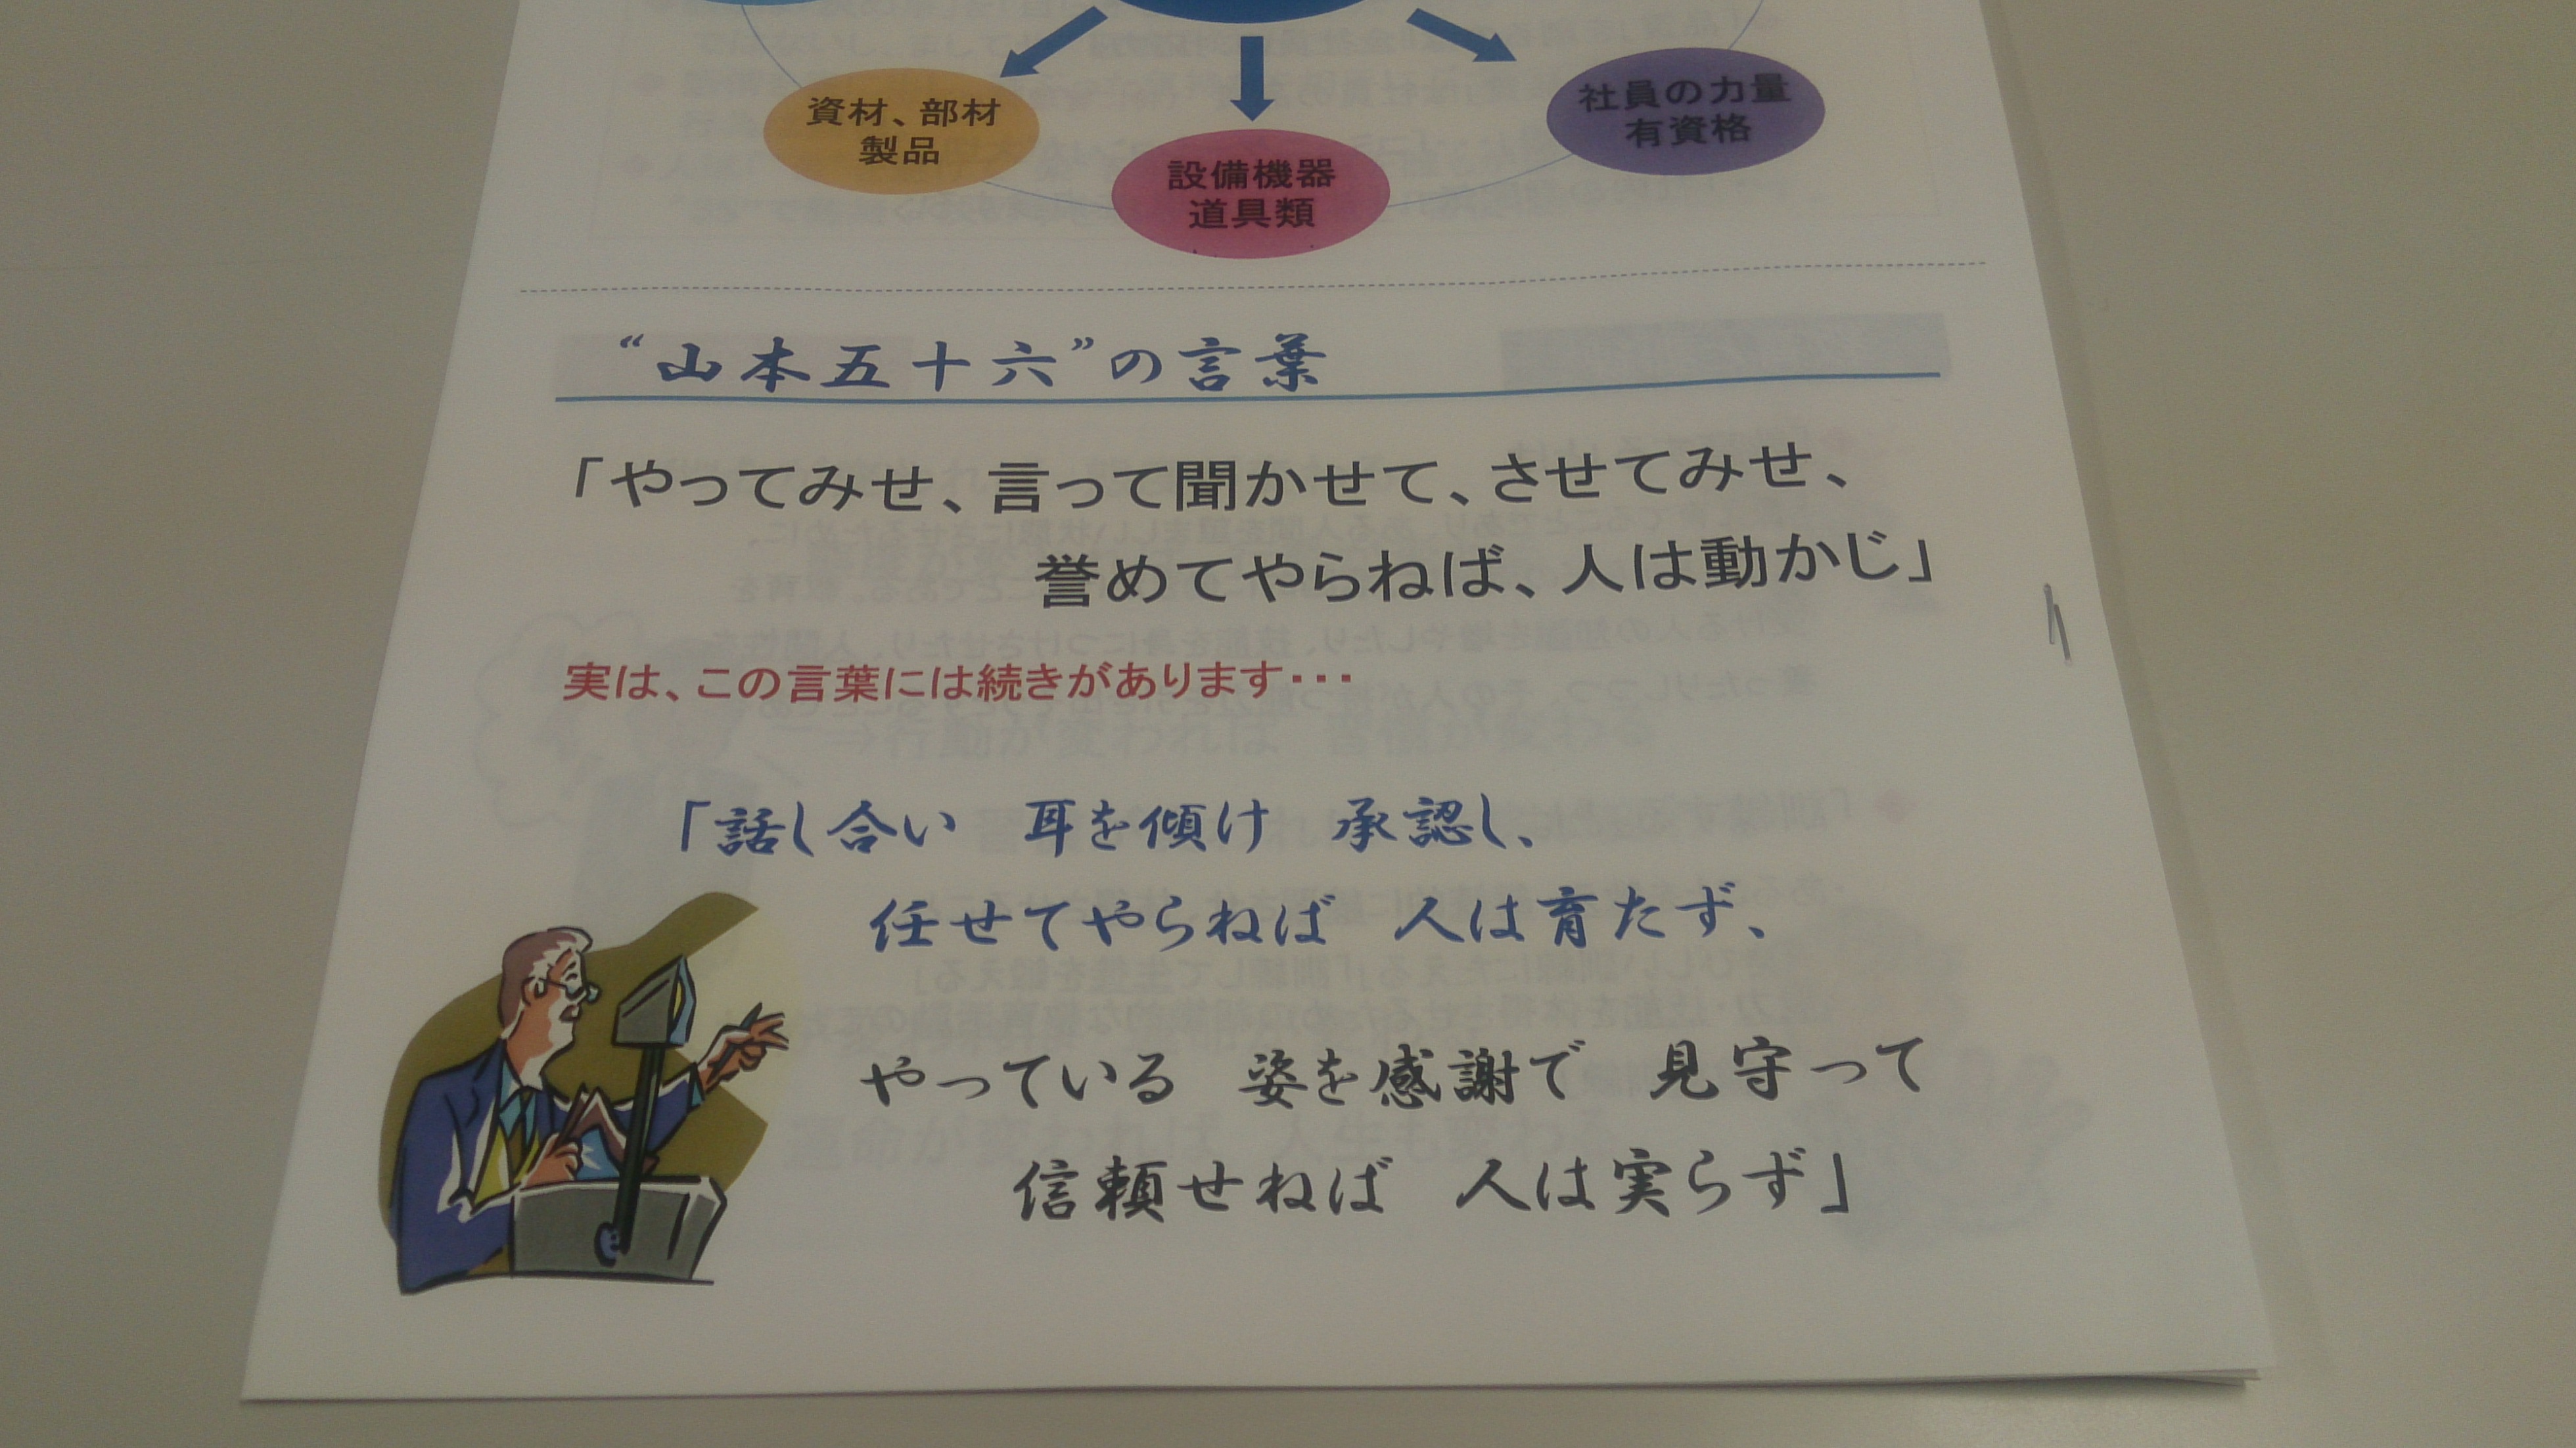 資材、部材
製品
設備機器
道具類
社員の力量
有資格
“山本五十六”の言葉
「やってみせ、言って聞かせて、させてみせ、
誉めてやらねば、人は動かじ」
実は、この言葉には続きがあります・・・
「話し合い　耳を傾け　承認し、
任せてやらねば　人は育たず、
やっている　姿を感謝で　見守って
信頼せねば　人は実らず」